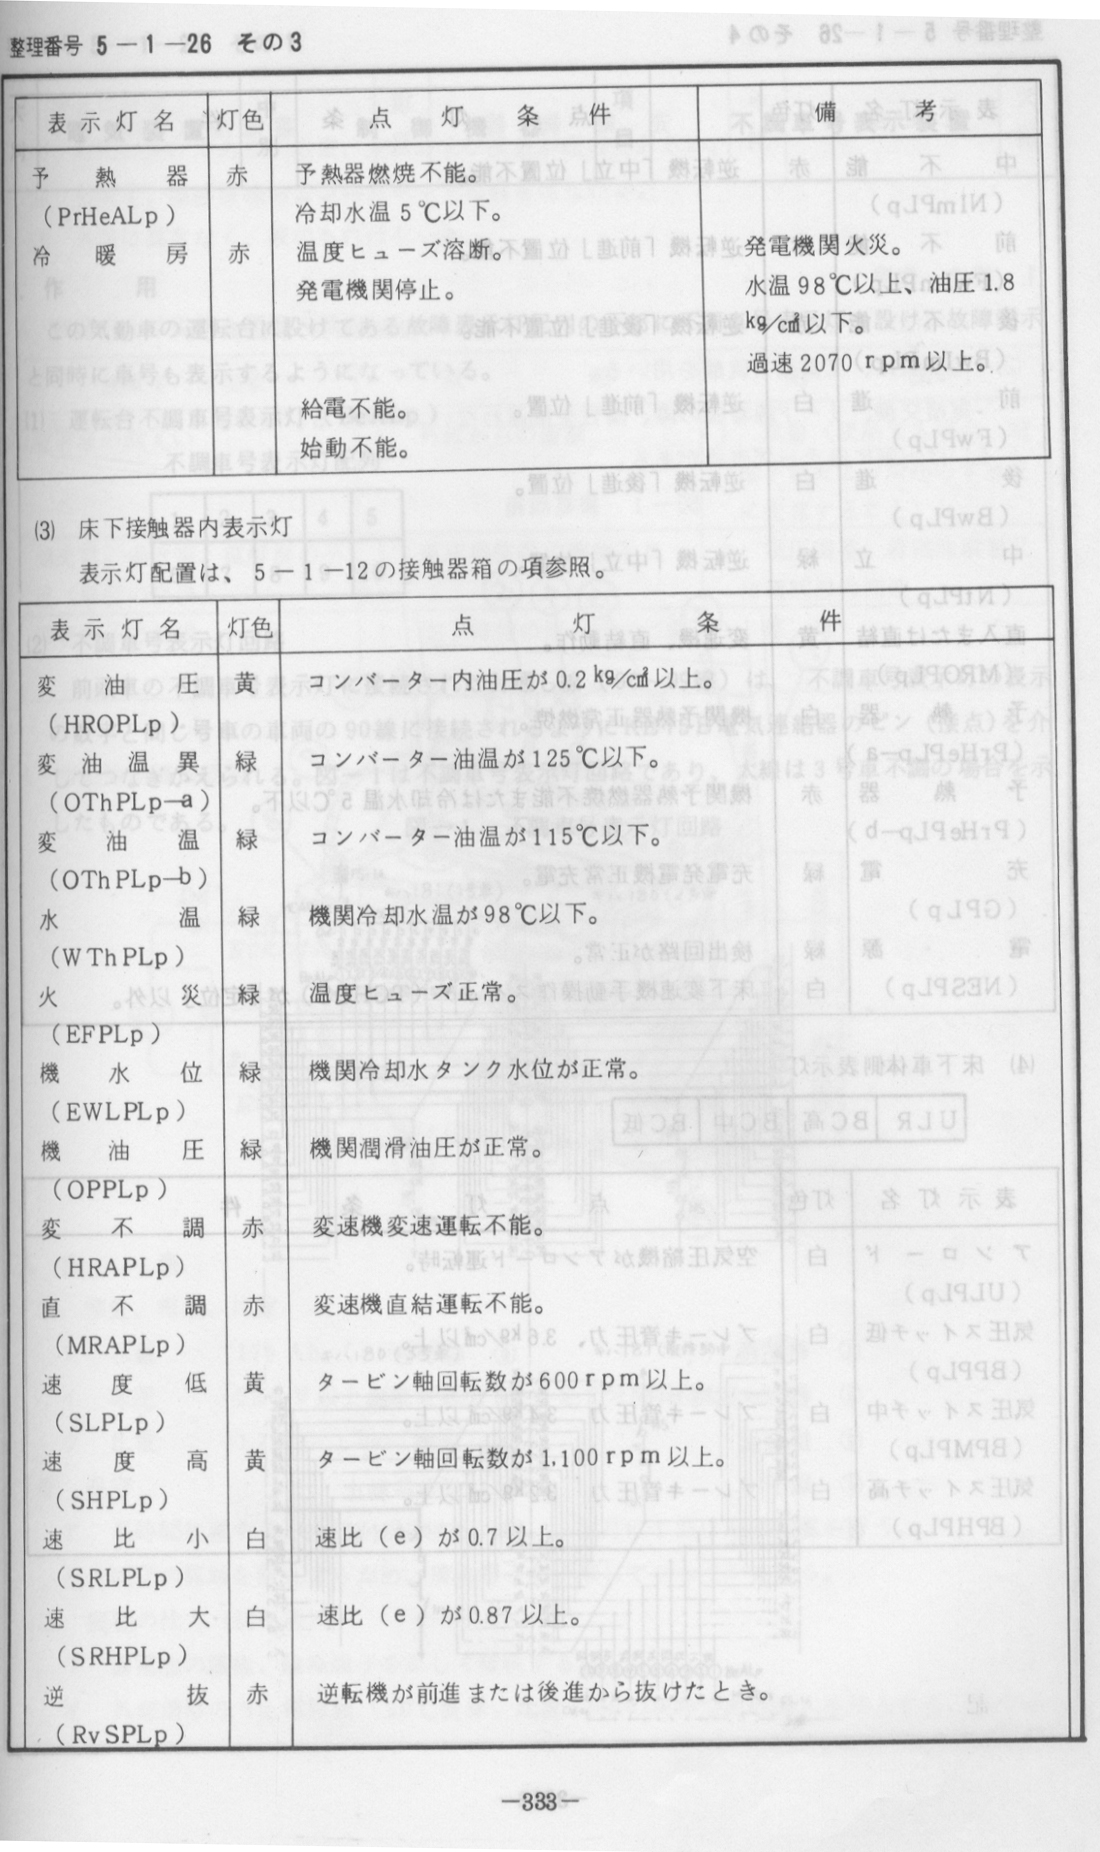 整理番号 5－1－26 その3
表示灯名 灯色 点灯条件 備考
予熱器 赤 予熱器燃焼不能。
(PrHeALp) 冷却水温5℃以下。
冷暖房 赤 温度ヒューズ溶断。 発電機関火災。
発電機関停止。 水温98℃以上、油圧1.8
kg/c㎡以下。
過速2070rpm以上。
給電不能。
始動不能。
(3) 床下接触器内表示灯
表示灯配置は、5－1－12の接触器箱の項参照。
表示灯名 灯色 点灯条件
変油圧 黄 コンバーター内油圧が0.2kg/c㎡以上。
(HROPLp)
変油温異 緑 コンバーター油温が125℃以下。
(OThPLp－a)
変油温 緑 コンバーター油温が115℃以下。
(OThPLp－b)
水温 緑 機関冷却水温が98℃以下。
(WThPLp)
火災 緑 温度ヒューズ正常。
(EFPLp)
機水位 緑 機関冷却水タンク水位が正常。
(EWLPLp)
機油圧 緑 機関潤滑油圧が正常。
(OPPLp)
変不調 赤 変速機変速運転不能。
(HRAPLp)
直不調 赤 変速機直結運転不能。
(MRAPLp)
速度低 黄 タービン軸回転数が600rpm以上。
(SLPLp)
速度高 黄 タービン軸回転数が1,100rpm以上。
(SHPLp)
速比小 白 速比(e)が0.7以上。
(SRLPLp)
速比大 白 速比(e)が0.87以上。
(SRHPLp)
逆抜 赤 逆転機が前進または後進から抜けたとき。
(RvSPLp)
－333－